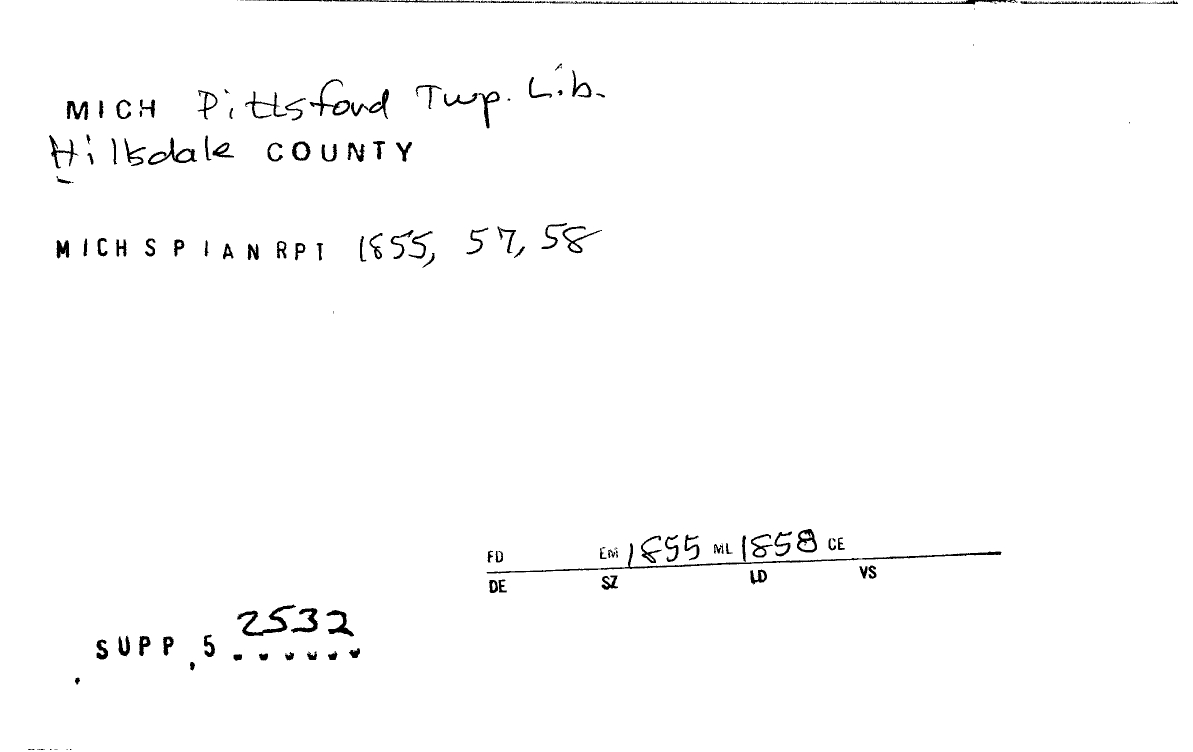 MICH Pittsford Twp. Lib.
Hillsdale COUNTY
MICH S P I A N RPT 1855, 57, 58
FD EM 1855 ML 1858 CE
DE SZ LD VS
SUPP, 5 2532